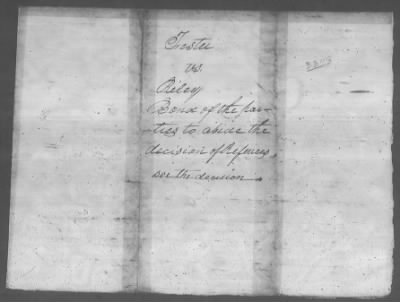 vs.
Riley
Bond of the par-
-ties to abide the
decision of Referees,
see the decision.